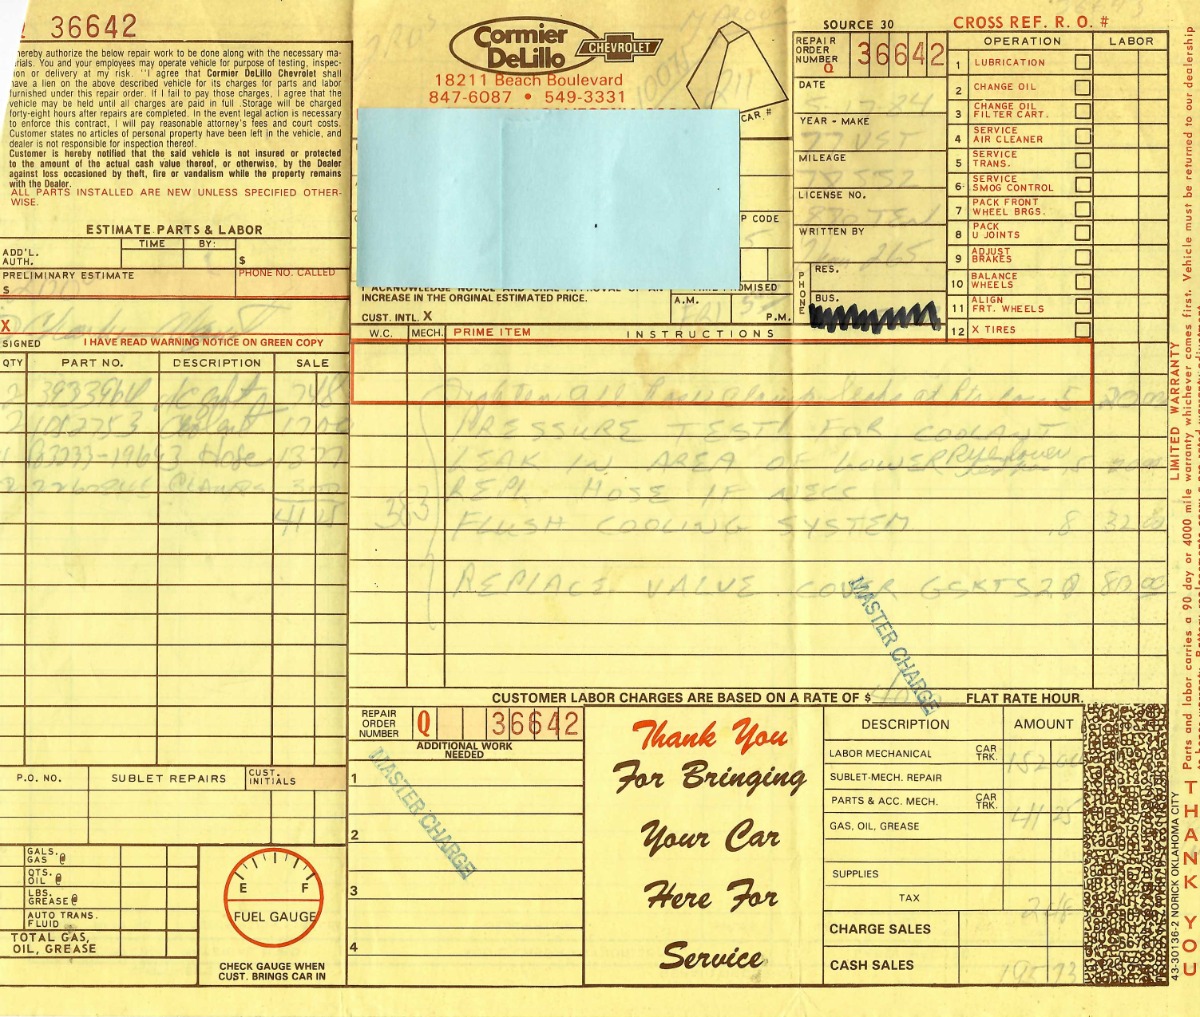 Q 36642
hereby authorize the below repair work to be done along with the necessary ma-
rials. You and your employees may operate vehicle for purpose of testing, inspec-
ion or delivery at my risk. "I agree that Cormier DeLillo Chevrolet shall
have a lien on the above described vehicle for its charges for parts and labor
furnished under this repair order. If I fail to pay those charges, I agree that the
vehicle may be held until all charges are paid in full .Storage will be charged
forty-eight hours after repairs are completed. In the event legal action is necessary
to enforce this contract, I will pay reasonable attorney's fees and court costs.
Customer states no articles of personal property have been left in the vehicle, and
dealer is not responsible for inspection thereof.
Customer is hereby notified that the said vehicle is not insured or protected
to the amount of the actual cash value thereof, or otherwise, by the Dealer
against loss occasioned by theft, fire or vandalism while the property remains
with the Dealer.
ALL PARTS INSTALLED ARE NEW UNLESS SPECIFIED OTHER-
WISE.
ESTIMATE PARTS & LABOR
TIME BY:
ADD'L.
AUTH. $
PRELIMINARY ESTIMATE PHONE NO. CALLED
$
X
SIGNED I HAVE READ WARNING NOTICE ON GREEN COPY
QTY PART NO. DESCRIPTION SALE
2 3933964 7 48
2 1052753 Coolant
Hose 13 77
Clamps
41 25
P.O. NO. SUBLET REPAIRS CUST. INITIALS
GALS. GAS @
QTS. OIL @
LBS. GREASE @
AUTO TRANS. FLUID
TOTAL GAS, OIL, GREASE
E F
FUEL GAUGE
CHECK GAUGE WHEN
CUST. BRINGS CAR IN
Cormier
DeLillo
CHEVROLET
18211 Beach Boulevard
847-6087 • 549-3331
CAR #
P CODE
INCREASE IN THE ORGINAL ESTIMATED PRICE.
CUST. INTL. X
OMISED
A.M.
P.M.
SOURCE 30
REPAIR ORDER NUMBER Q 36642
DATE
5-17-84
YEAR - MAKE
77 VST
MILEAGE
78552
LICENSE NO.
870 TEN
WRITTEN BY
265
PHONE
RES.
BUS.
CROSS REF. R. O. #
OPERATION LABOR
1 LUBRICATION
2 CHANGE OIL
3 CHANGE OIL FILTER CART.
4 SERVICE AIR CLEANER
5 SERVICE TRANS.
6 SERVICE SMOG CONTROL
7 PACK FRONT WHEEL BRGS.
8 PACK U JOINTS
9 ADJUST BRAKES
10 BALANCE WHEELS
11 ALIGN FRT. WHEELS
12 X TIRES
W.C. MECH. PRIME ITEM INSTRUCTIONS
Tighten all 5 20.00
PRESSURE TEST FOR COOLANT
LEAK IN AREA OF LOWER .5 20.00
REPL. HOSE IF NECC
383 FLUSH COOLING SYSTEM .8 32.00
REPLACE VALVE COVER GSKTS 2.0 80.00
MASTER CHARGE
CUSTOMER LABOR CHARGES ARE BASED ON A RATE OF $ 40 FLAT RATE HOUR.
REPAIR ORDER NUMBER Q 36642
ADDITIONAL WORK NEEDED
1
2
3
4
MASTER CHARGE
Thank You
For Bringing
Your Car
Here For
Service
DESCRIPTION AMOUNT
LABOR MECHANICAL CAR TRK. 152 00
SUBLET-MECH. REPAIR
PARTS & ACC. MECH. CAR TRK. 41 25
GAS, OIL, GREASE
SUPPLIES
TAX 2 48
CHARGE SALES
CASH SALES 195 73
LIMITED WARRANTY
Parts and labor carries a 90 day or 4000 mile warranty whichever comes first. Vehicle must be returned to our dealership
THANK YOU
43-30136-2 NORICK OKLAHOMA CITY